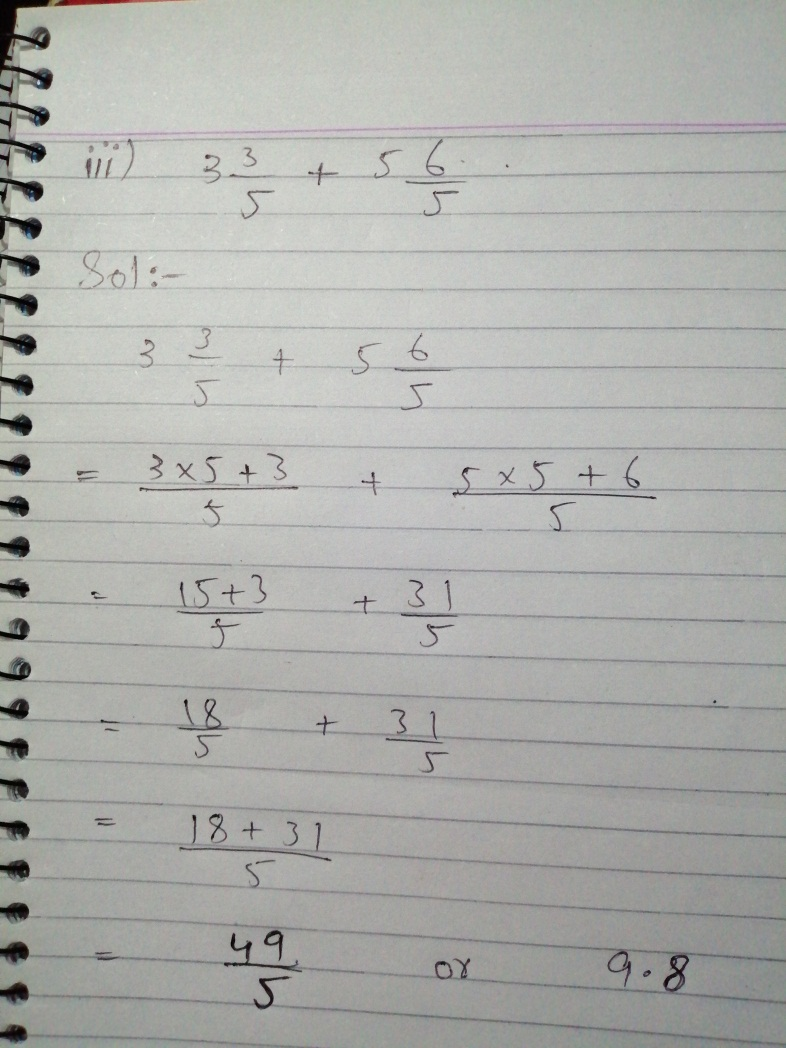 iii) 3 3/5 + 5 6/5
Sol:-
3 3/5 + 5 6/5
= 3×5+3/5 + 5×5+6/5
= 15+3/5 + 31/5
= 18/5 + 31/5
= 18+31/5
= 49/5 or 9.8